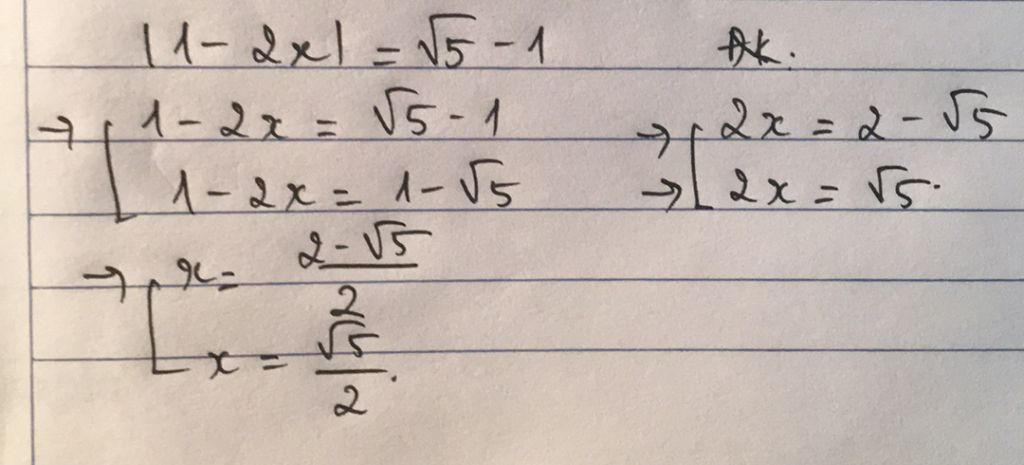 |1 - 2x| = √5 - 1 ĐK.
→ [ 1 - 2x = √5 - 1 → [ 2x = 2 - √5
1 - 2x = 1 - √5 → 2x = √5.
→ [ x = (2 - √5)/2
x = √5/2.